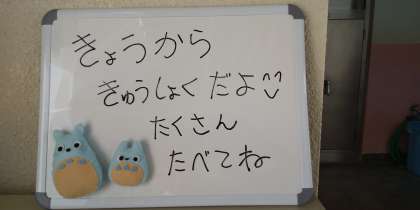 きょうから
きゅうしょくだよ^^
たくさん
たべてね